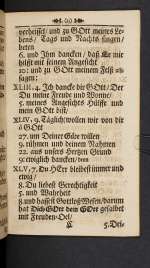 verheissel/ und zu GOtt meines Le-
bens/ Tags und Nachts singen/
beten
6. und Ihm dancken/ daß Er mir
hilfft mit seinem Angesicht
10. und zu GOtt meinem Felß
sagen:
XLIII. 4. Ich dancke dir GOtt/ Der
Du meine Freude und Wonne/
5. meines Angesichts Hülffe und
mein GOtt bist/
XLIV, 9. Täglich/wollen wir von dir
ô GOtt
27. um Deiner Güte willen
9. rühmen und deinen Nahmen
22. aus unsers Hertzen Grund
9. ewiglich dancken/ denn
XLV, 7. Du HErr bleibest immer und
ewig/
8. Du liebest Gerechtigkeit
5. und Wahrheit
8. und hassest Gottloß Wesen/ darum
hat Dich GOtt dein GOtt gesalbet
mit Freuden-Oel/